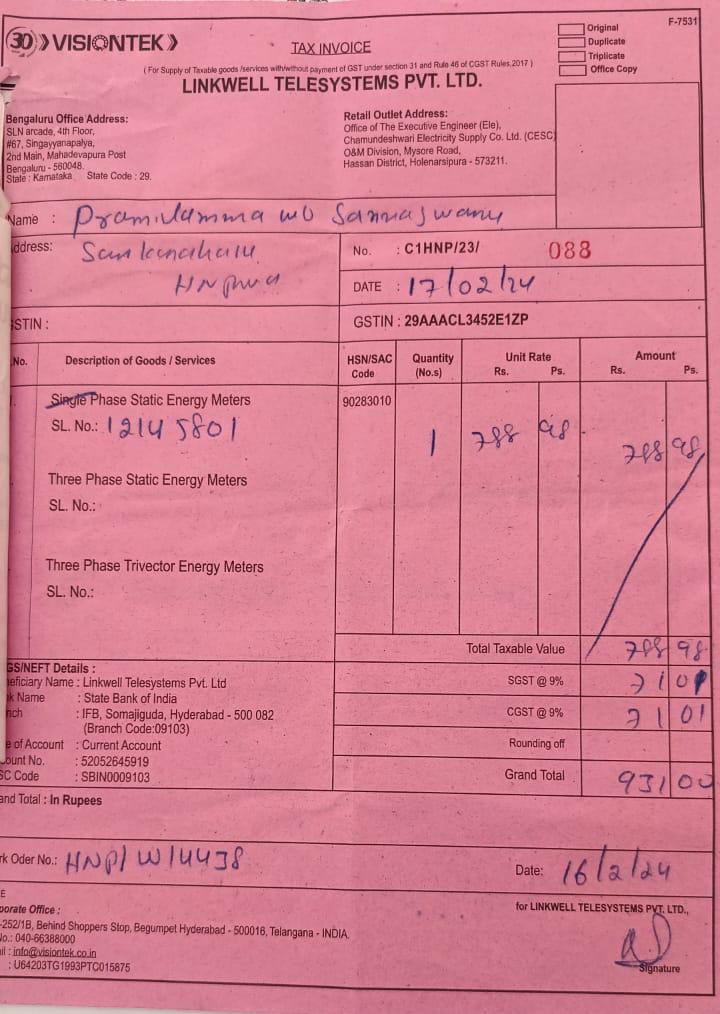 30 VISIONTEK
TAX INVOICE
F-7531
Original
Duplicate
Triplicate
Office Copy
( For Supply of Taxable goods /services with/without payment of GST under section 31 and Rule 46 of CGST Rules,2017 )
LINKWELL TELESYSTEMS PVT. LTD.
Bengaluru Office Address:
SLN arcade, 4th Floor,
#67, Singayyanapalya,
2nd Main, Mahadevapura Post
Bengaluru - 560048.
State : Karnataka State Code : 29.
Retail Outlet Address:
Office of The Executive Engineer (Ele),
Chamundeshwari Electricity Supply Co. Ltd. (CESC)
O&M Division, Mysore Road,
Hassan District, Holenarsipura - 573211.
Name : Pramilamma w/o Sannaswamy
ddress: Sankanahalli
HNpura
No. : C1HNP/23/ 088
DATE : 17/02/24
STIN :
GSTIN : 29AAACL3452E1ZP
.No. Description of Goods / Services HSN/SAC Code Quantity (No.s) Unit Rate Rs. Ps. Amount Rs. Ps.
Single Phase Static Energy Meters 90283010
SL. No.: 12145801 1 788 98 788 98
Three Phase Static Energy Meters
SL. No.:
Three Phase Trivector Energy Meters
SL. No.:
Total Taxable Value 788 98
GS/NEFT Details :
eficiary Name : Linkwell Telesystems Pvt. Ltd
k Name : State Bank of India
nch : IFB, Somajiguda, Hyderabad - 500 082
(Branch Code:09103)
e of Account : Current Account
ount No. : 52052645919
SC Code : SBIN0009103
SGST @ 9% 71 01
CGST @ 9% 71 01
Rounding off
Grand Total 931 00
and Total : In Rupees
rk Oder No.: HNP/W/4438
Date: 16/2/24
E
porate Office :
-252/1B, Behind Shoppers Stop, Begumpet Hyderabad - 500016, Telangana - INDIA.
No.: 040-66388000
il : info@visiontek.co.in
: U64203TG1993PTC015875
for LINKWELL TELESYSTEMS PVT. LTD.,
Signature